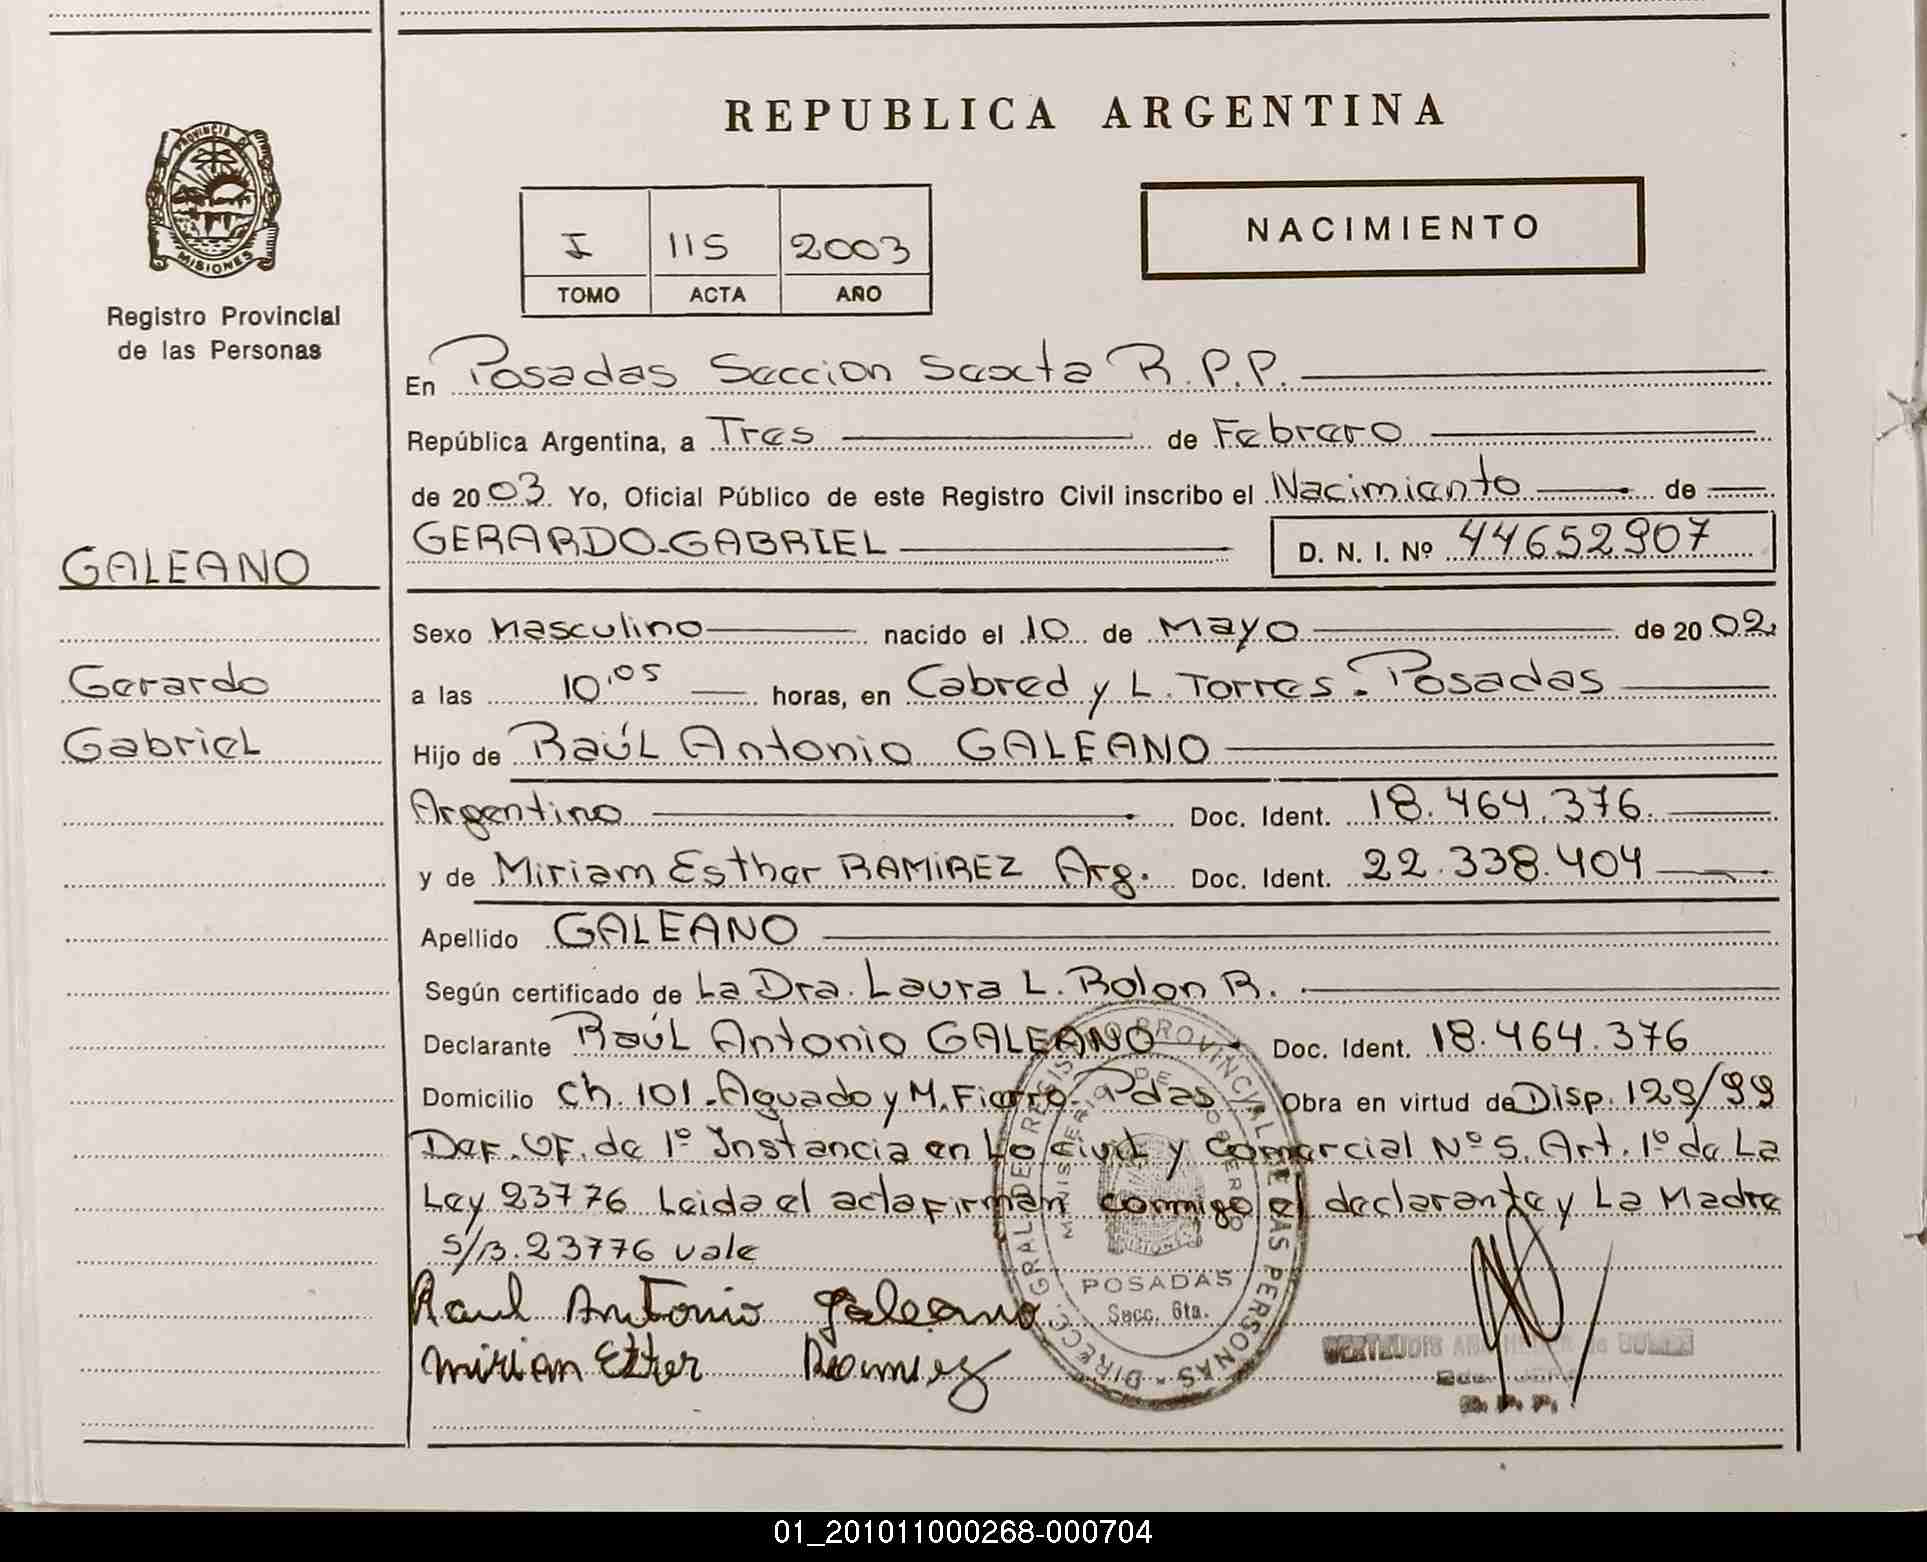 REPUBLICA ARGENTINA
PROVINCIA DE
MISIONES
Registro Provincial
de las Personas
I 115 2003
TOMO ACTA AÑO
NACIMIENTO
En Posadas Seccion Sexta R.P.P.
República Argentina, a Tres de Febrero
de 2003. Yo, Oficial Público de este Registro Civil inscribo el Nacimiento de
GERARDO-GABRIEL D. N. I. Nº 44652907
GALEANO
Sexo Masculino nacido el 10 de Mayo de 2002
Gerardo
a las 10,05 horas, en Cabred y L. Torres. Posadas
Gabriel
Hijo de Raúl Antonio GALEANO
Argentino Doc. Ident. 18.464.376.
y de Miriam Esther RAMIREZ Arg. Doc. Ident. 22.338.404
Apellido GALEANO
Según certificado de La Dra. Laura L. Bolon R.
Declarante Raúl Antonio GALEANO Doc. Ident. 18.464.376
Domicilio Ch. 101. Aguado y M. Fierro. Pdas. Obra en virtud de Disp. 129/99
Def. OF. de 1º Instancia en Lo Civil y Comercial Nº 5. Art. 1º de La
Ley 23776 Leida el acta firman conmigo el declarante y La Madre
S/B. 23776 vale
Raul Antonio Galeano
Mirian Ezter Ramirez
DIRECC. GRAL DE REGISTRO PROVINCIAL DE LAS PERSONAS
MINISTERIO DE GOBIERNO
MISIONES
POSADAS
Secc. 6ta.
GERTRUDIS
R. P. P.
01_201011000268-000704